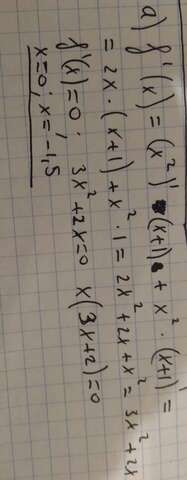 a) f'(x) = (x²)' (x+1) + x² · (x+1)' =
= 2x · (x+1) + x² · 1 = 2x² + 2x + x² = 3x² + 2x
f'(x) = 0 ; 3x² + 2x = 0 x(3x+2) = 0
x = 0 ; x = -1,5